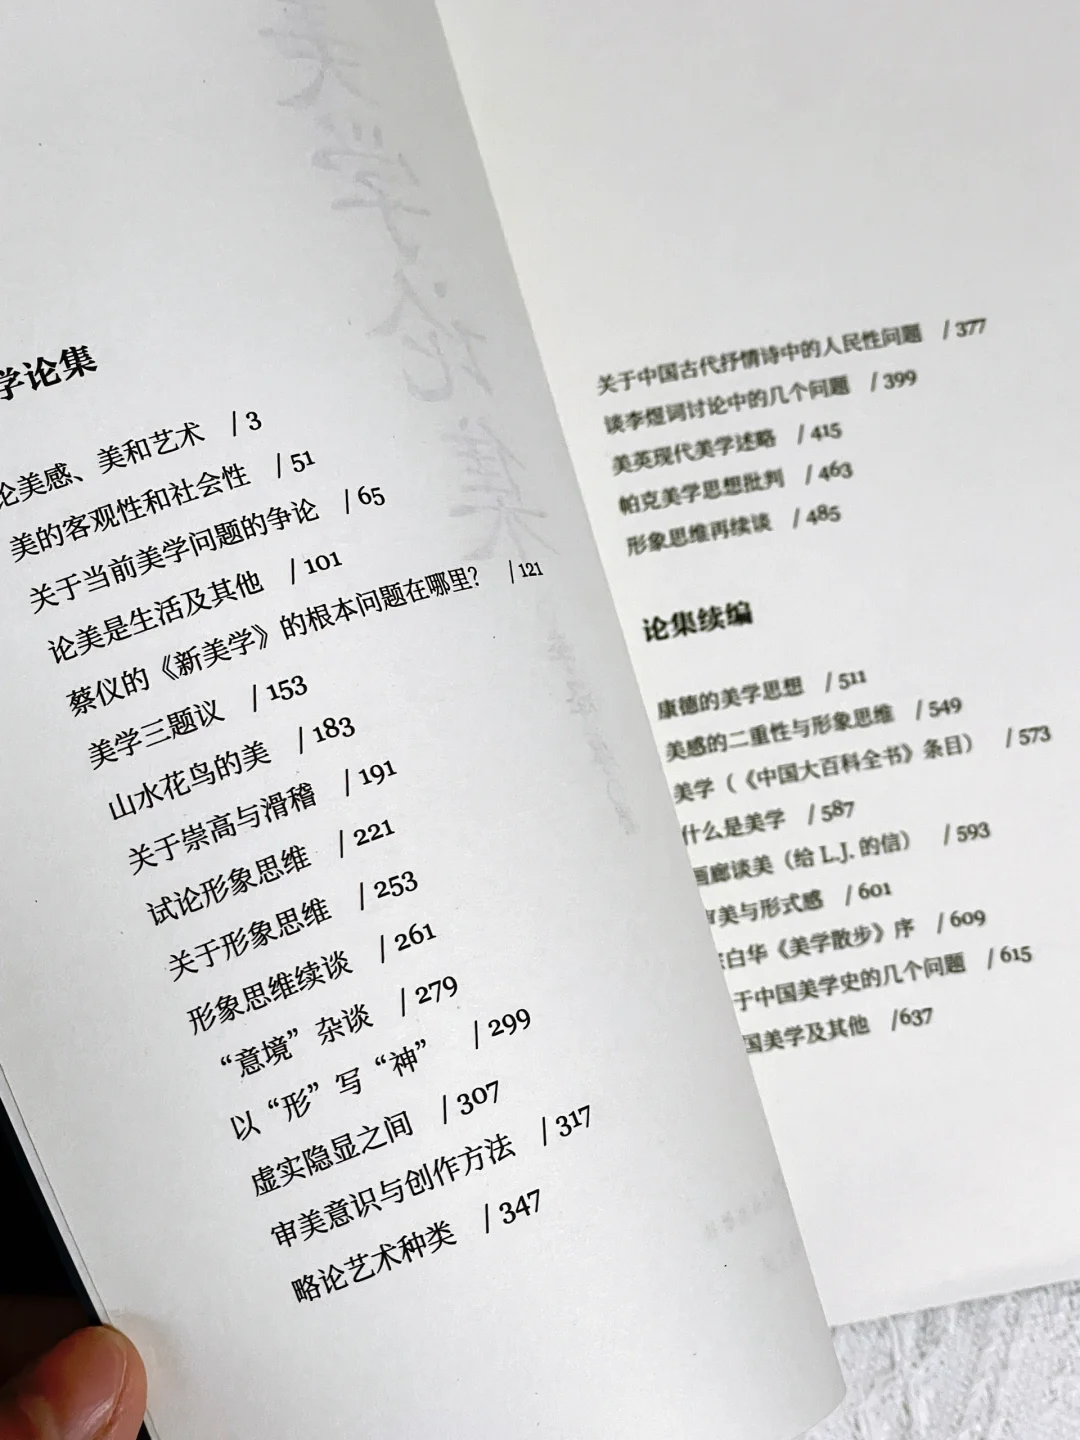 学论集
论美感、美和艺术 / 3
美的客观性和社会性 / 51
关于当前美学问题的争论 / 65
论美是生活及其他 / 101
蔡仪的《新美学》的根本问题在哪里？ / 121
美学三题议 / 153
山水花鸟的美 / 183
关于崇高与滑稽 / 191
试论形象思维 / 221
关于形象思维 / 253
形象思维续谈 / 261
“意境”杂谈 / 279
以“形”写“神” / 299
虚实隐显之间 / 307
审美意识与创作方法 / 317
略论艺术种类 / 347
关于中国古代抒情诗中的人民性问题 / 377
谈李煜词讨论中的几个问题 / 399
美英现代美学述略 / 415
帕克美学思想批判 / 463
形象思维再续谈 / 485
论集续编
康德的美学思想 / 511
美感的二重性与形象思维 / 549
美学（《中国大百科全书》条目） / 573
什么是美学 / 587
画廊谈美（给 L.J. 的信） / 593
审美与形式感 / 601
宗白华《美学散步》序 / 609
于中国美学史的几个问题 / 615
国美学及其他 / 637
美学论集